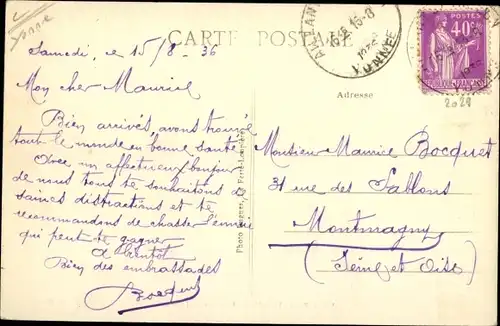 Yonne
CARTE POSTALE
YONNE
15-8
POSTES
40c
2028
Samedi, le 15/8 - 36
Mon cher Maurice
Bien arrivés, avons trouvé
tout le monde en bonne santé
Avec un affectueux bonjour
de nous tous te souhaitons de
saines distractions et te
recommandons de chasser l'ennui
qui peut te gagner
A bientôt
Bien des embrassades
Bocquet
Adresse
Monsieur Maurice Bocquet
31 rue des Sablons
Montmagny
(Seine et Oise)